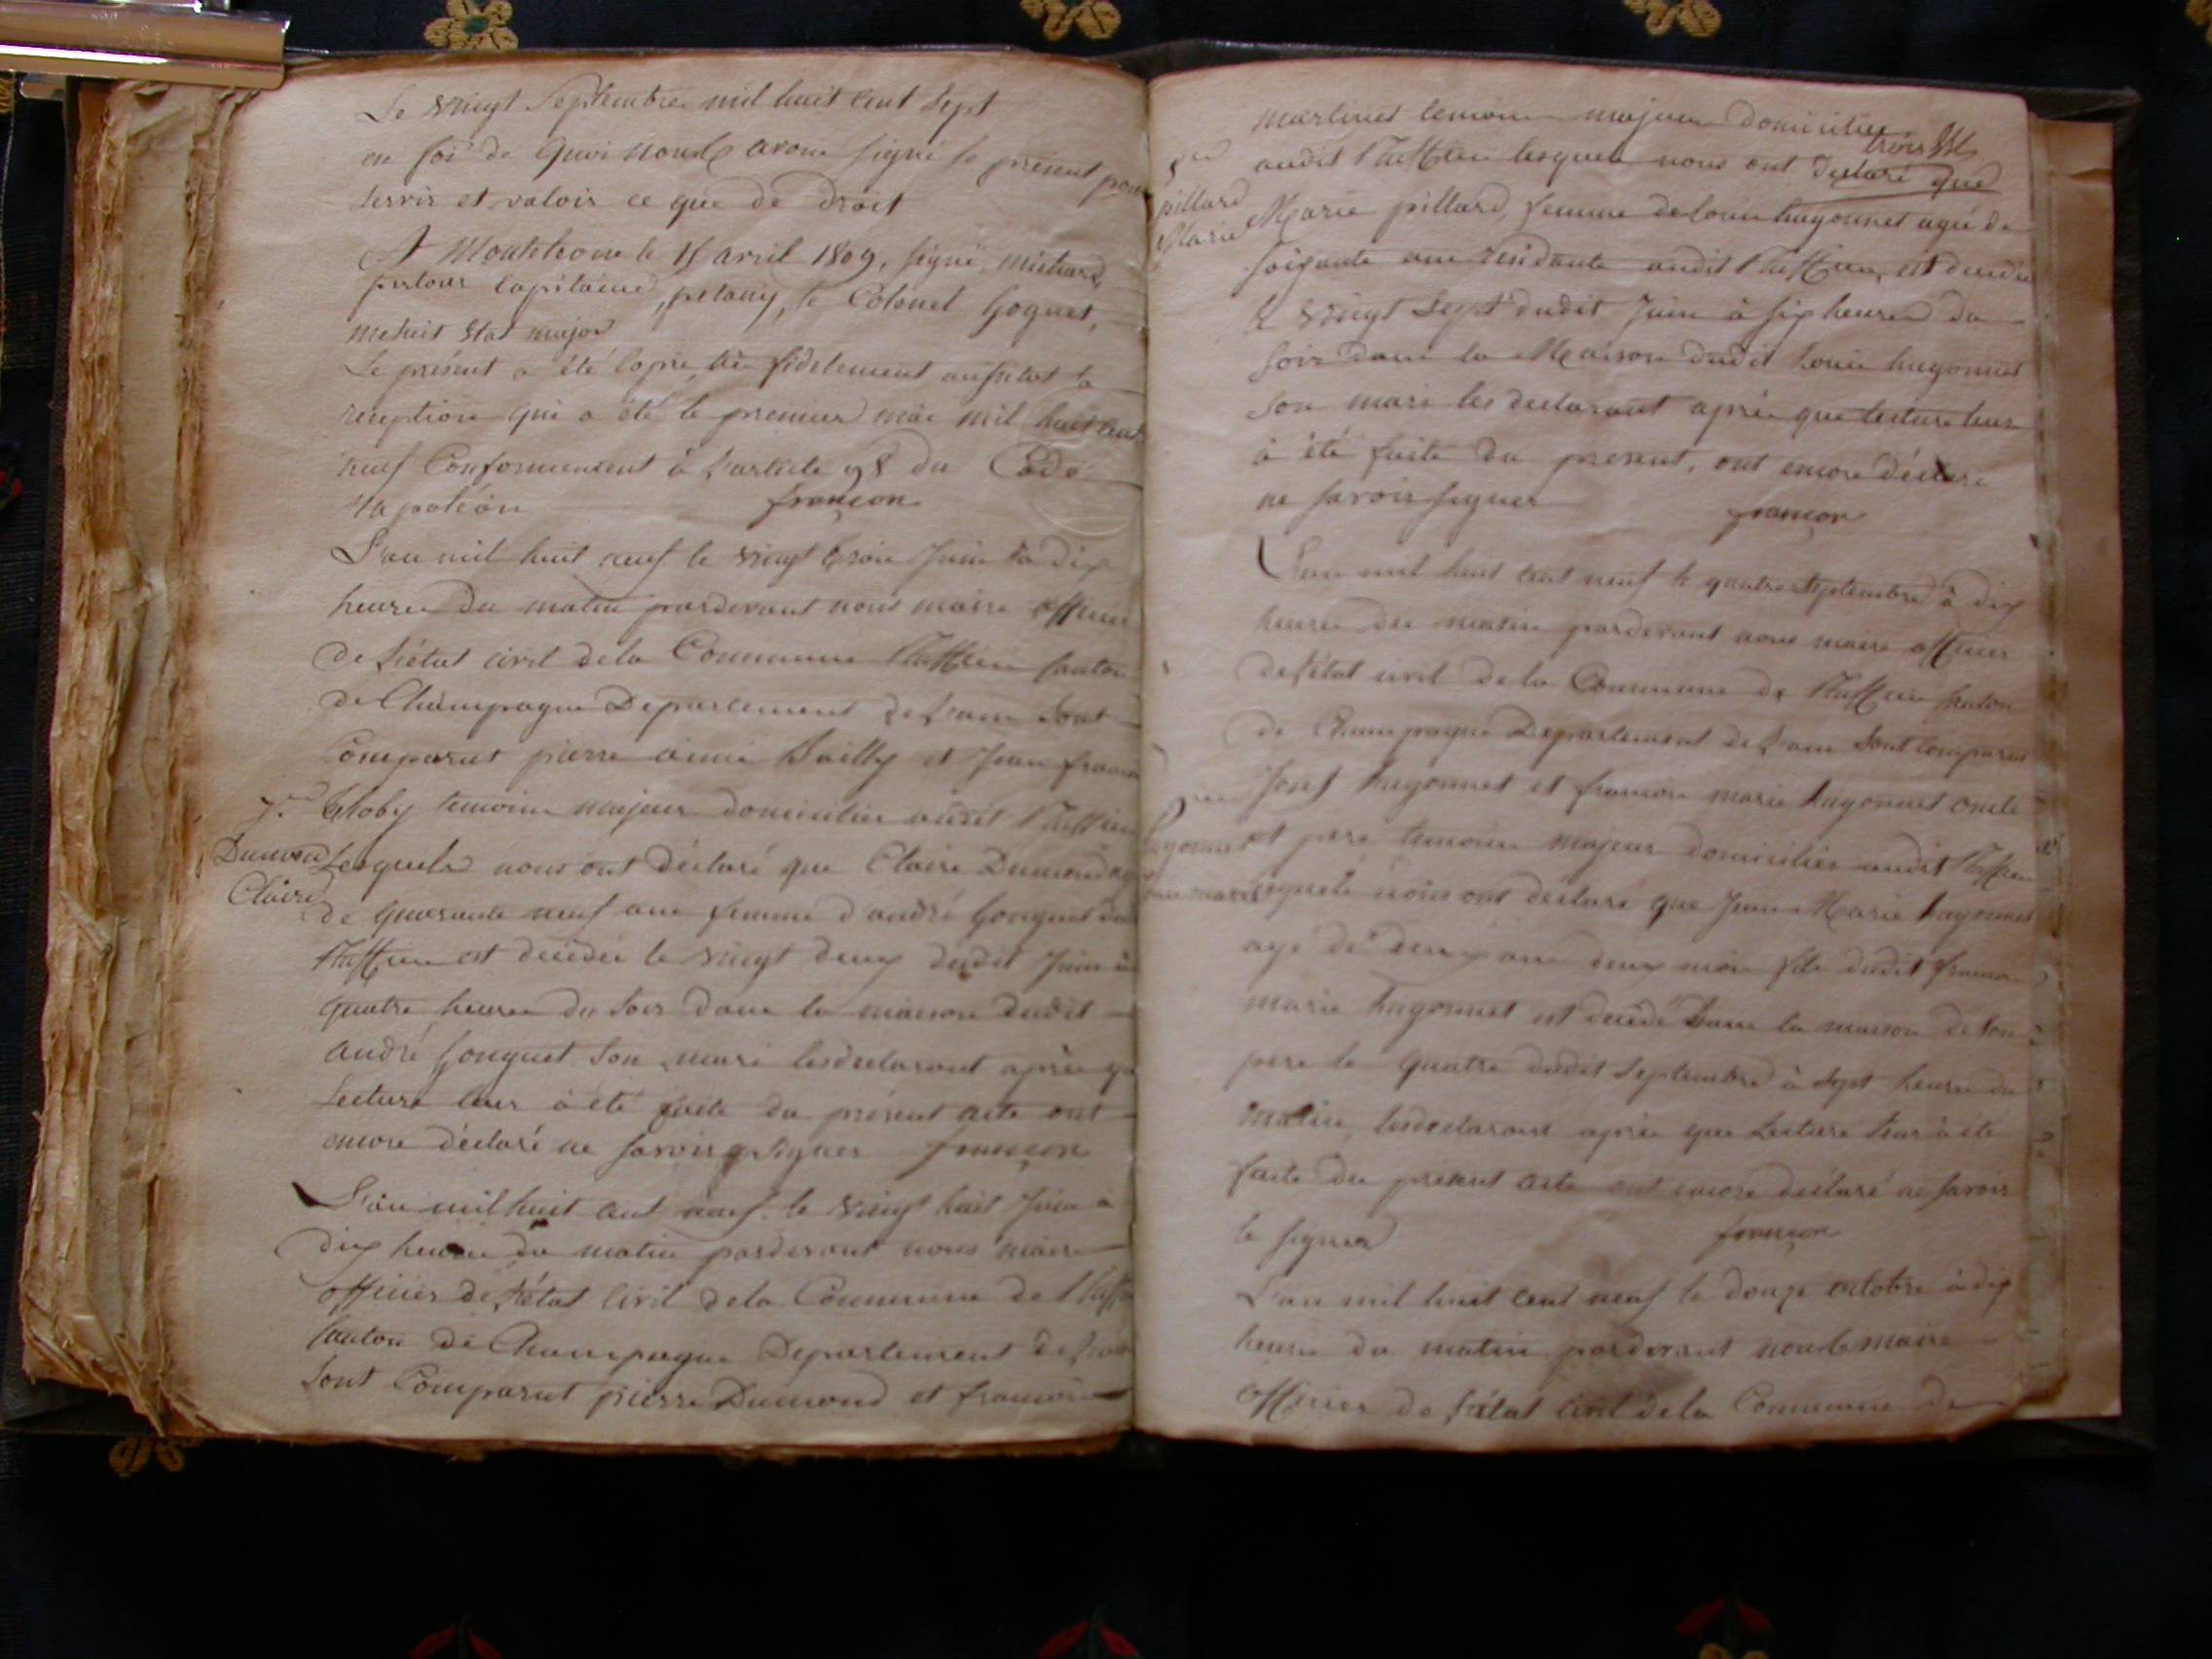 Le vingt Septembre mil huit cent Sept
en foi de quoi nous avons signé le présent pour
servir et valoir ce que de droit
A le 15 avril 1809, signé, michard,
capitaine, petany, le Colonel Goguet,
Stat major
Le présent a été copié fidelement aussitot la
réception qui a été le premier mai mil huit cent
neuf Conformement à l'article 98 du Code
Napoléon françon
L'an mil huit neuf le vingt trois Juin à dix
heures du matin pardevant nous maire officier
de l'état civil de la Commune canton
de Champagne Departement de l'ain Sont
Comparut pierre aimé Bailly et Jean françois
7.me
temoins majeurs domiciliés audit
Dumond
Claire
Lesquels nous ont déclaré que Claire Dumond agée
de quarante neuf ans femme d'andré Gonguet dud
est decedée le vingt deux dudit Juin à
quatre heures du Soir dans la maison dudit
andré Gonguet Son mari lesdeclarant après que
Lecture leur à été faite du présent acte ont
encore déclaré ne savoir Signer françon
L'an mil huit cent neuf le vingt huit Juin à
dix heures du matin pardevant nous maire
officier de l'état Civil dela Commune de
Canton de Champagne Departement de l'ain
Sont Comparut pierre Dumond et françois
martinet temoins majeurs domiciliés
trois
audit lesquels nous ont declaré que
8.me
pillard
Marie
Marie pillard, femme de Louis hugonnet agée de
soixante ans residante audit est decedée
le vingt Sept dudit Juin à six heures du
soir dans la Maison dudit Louis hugonnet
son mari les declarant après que lecture leur
à été faite du present, ont encore déclaré
ne savoir signer françon
L'an mil huit cent neuf le quatre Septembre à dix
heures du matin pardevant nous maire officier
de l'état civil de la Commune de Canton
de Champagne Departement de l'ain Sont Comparut
hugonnet et françois marie hugonnet oncle
hugonnet
jean marie
et pere temoins majeurs domiciliés audit
lesquels nous ont déclaré que Jean Marie hugonnet
agé de deux ans deux mois fils dudit françois
marie hugonnet est decédé Dans la maison de son
pere le quatre dudit Septembre à Sept heures du
matin, lesdeclarant après que Lecture leur à été
faite du présent acte ont encore déclaré ne savoir
le signer françon
L'an mil huit cent neuf le douze octobre à dix
heures du matin pardevant nous maire
officier de l'état Civil dela Commune de